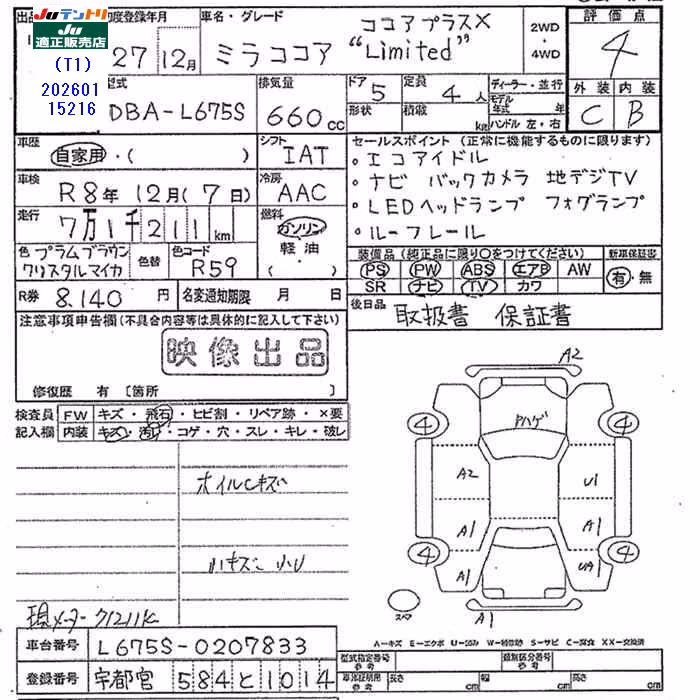 Juテントリ
Ju 適正販売店
(T1)
202601
15216
初度登録年月
27 12月
車名・グレード
ミラココア ココアプラスX
"Limited"
2WD
・
4WD
評価点
4
外装 内装
C B
型式
DBA-L675S
排気量
660cc
ドア 5
形状
定員 4人
積載 kg
ディーラー・並行
モデル年式 年
ハンドル 左・右
車歴
自家用・( )
シフト
IAT
車検
R8年12月(7日)
冷房
AAC
走行
7万1千211km
燃料
ガソリン
軽・油
( )
色 プラムブラウン
クリスタルマイカ
色替
色コード
R59
セールスポイント (正常に機能するものに限ります)
・エコアイドル
・ナビ バックカメラ 地デジTV
・LEDヘッドランプ フォグランプ
・ルーフレール
装備品 (純正品に限り○をつけてください)
PS PW ABS エアB AW
SR ナビ TV カワ
新車保証書
有・無
R券 8,140円
名変通知期限 月 日
後日品 取扱書 保証書
注意事項申告欄(不具合内容等は具体的に記入して下さい)
映像出品
修復歴 有 〔箇所 〕
検査員
記入欄
FW キズ・飛石・ヒビ割・リペア跡・×要
内装 キズ・汚れ・コゲ・穴・スレ・キレ・破レ
ホイルCキズ
小キズ 小U
現メーター 71211K
A2
Pハゲ
4 4
A2 U1
A1 A1
4 4
A1 UA1
スペア
A1
A-キズ E-エクボ U-凹み W-補修跡 S-サビ C-腐食 XX-交換済
車台番号 L675S-0207833
登録番号 宇都宮 584と1014
型式指定番号 参考
類別区分番号 参考
車体証明用 参考 長さ cm 幅 cm 高さ cm